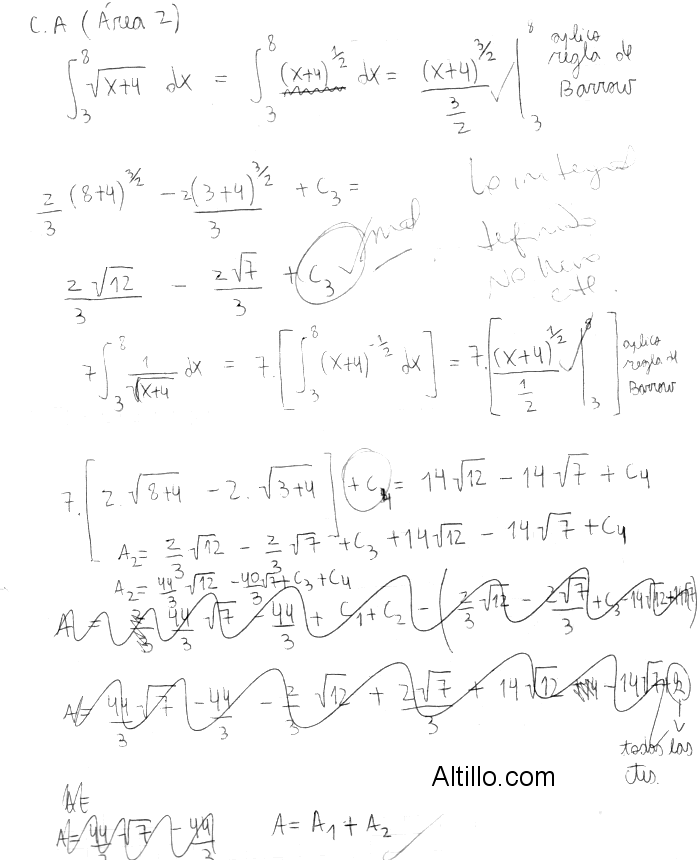 C.A (Área 2)
∫₃⁸ √(x+4) dx = ∫₃⁸ (x+4)^(1/2) dx = (x+4)^(3/2) / (3/2) |₃⁸ aplico regla de Barrow
2/3 (8+4)^(3/2) - 2(3+4)^(3/2)/3 + C₃ =
La integral
definida
NO lleva
cte.
2√12/3 - 2√7/3 + C₃ mal
7 ∫₃⁸ 1/√(x+4) dx = 7.[∫₃⁸ (x+4)^(-1/2) dx] = 7.[(x+4)^(1/2) / (1/2) |₃⁸] aplico regla de Barrow
7.[2.√(8+4) - 2.√(3+4)] + C₄ = 14√12 - 14√7 + C₄
A₂ = 2/3 √12 - 2/3 √7 + C₃ + 14√12 - 14√7 + C₄
A₂ = 44/3 √12 - 40/3 √7 + C₃ + C₄
A = 44/3 √7 - 44/3 + C₁ + C₂ - (2/3 √12 - 2√7/3 + C₃ - 14√12 + 14√7
A = 44/3 √7 - 44/3 - 2/3 √12 + 2√7/3 + 14√12 - 14√7
todas las
ctes.
A = 44/3 √7 - 44/3
A = A₁ + A₂
Altillo.com